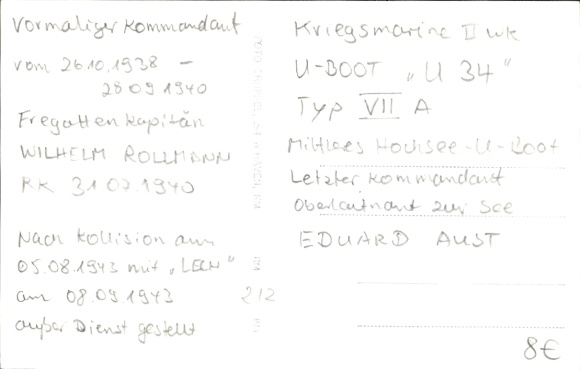 Vormaliger Kommandant
vom 26.10.1938 –
28 09 1940
Fregattenkapitän
WILHELM ROLLMANN
RK 31 07.1940
Nach Kollision am
05.08.1943 mit „LECH"
am 08.09 1943
außer Dienst gestellt
212
Kriegsmarine II WK
U-BOOT „U 34"
Typ VII A
Mittleres Hochsee-U-Boot
Letzter Kommandant
Oberleutnant zur See
EDUARD AUST
8€